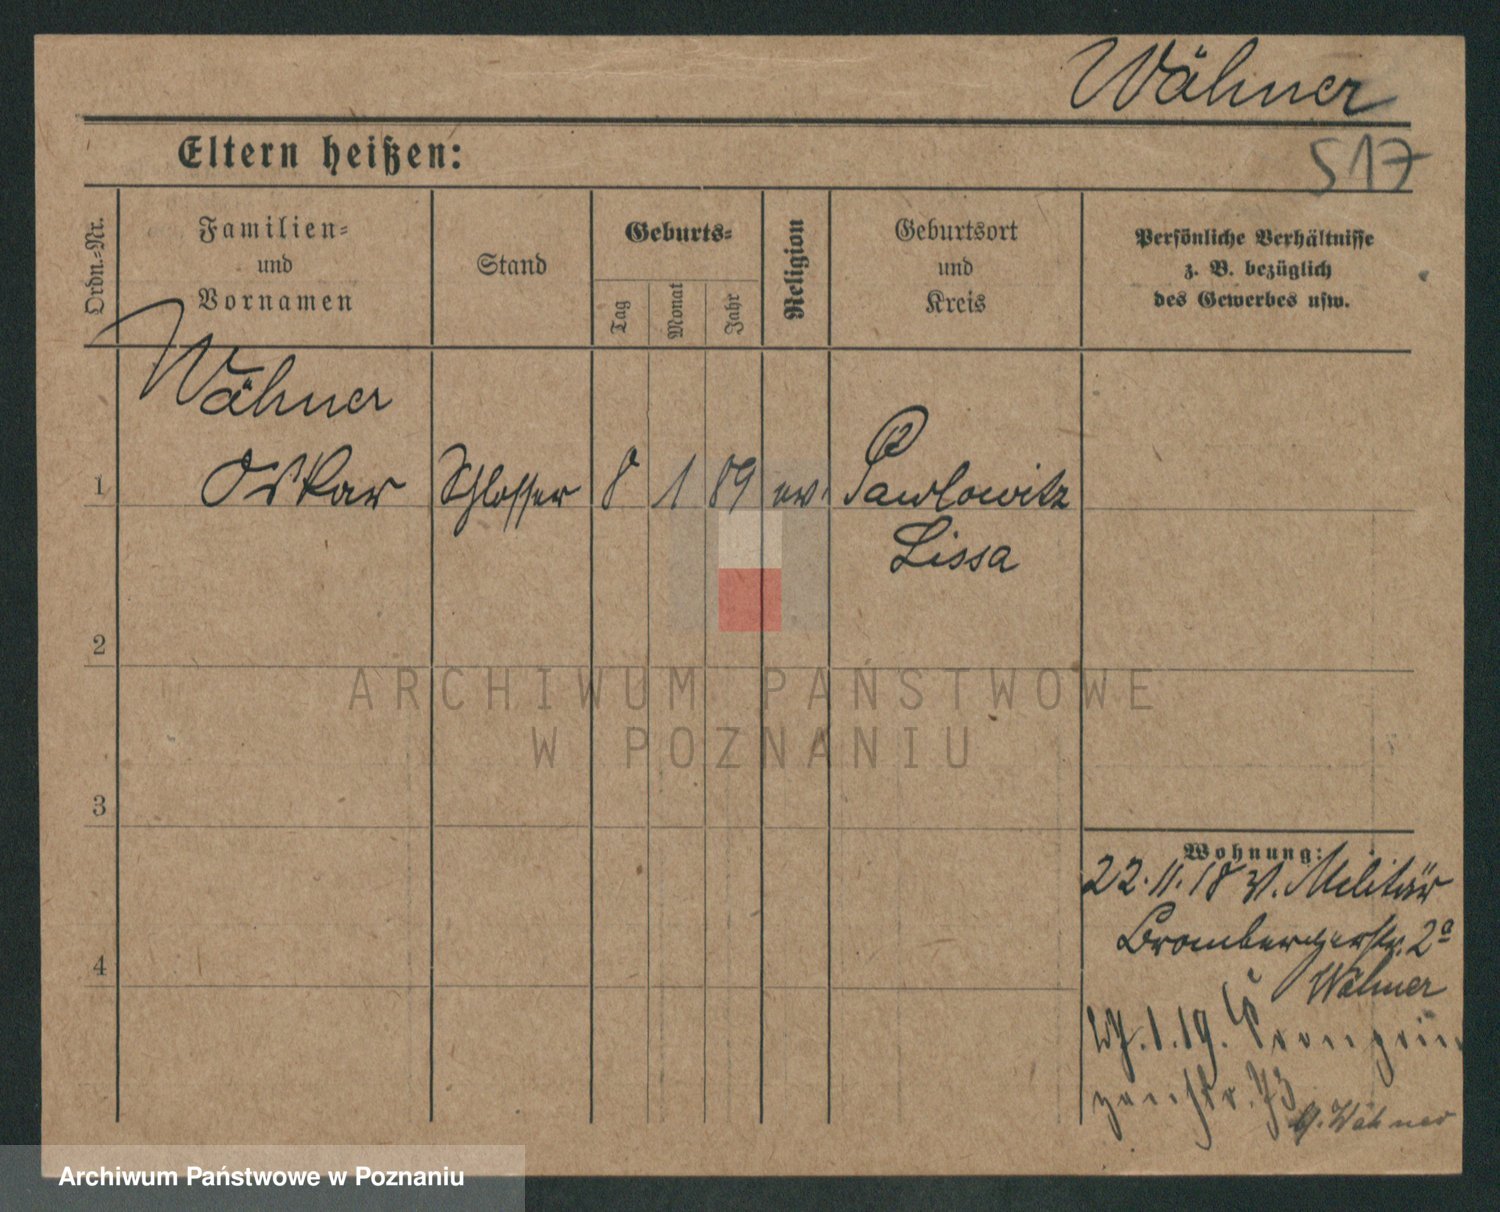 Wähner
517
Eltern heißen:
Ordn.-Nr.
Familien-
und
Vornamen
Stand
Geburts-
Tag
Monat
Jahr
Religion
Geburtsort
und
Kreis
Persönliche Verhältnisse
z. B. bezüglich
des Gewerbes usw.
Wähner
1 Oskar Schlosser 8 1 89 ev. Pawlowitz
Lissa
2
ARCHIWUM PAŃSTWOWE
W POZNANIU
3
Wohnung:
22.11.18 v. Militär
Brombergerstr. 2a
4
b/ Wähner
27.1.19. Kronprin
zenstr. 73
b/. Wähner
Archiwum Państwowe w Poznaniu